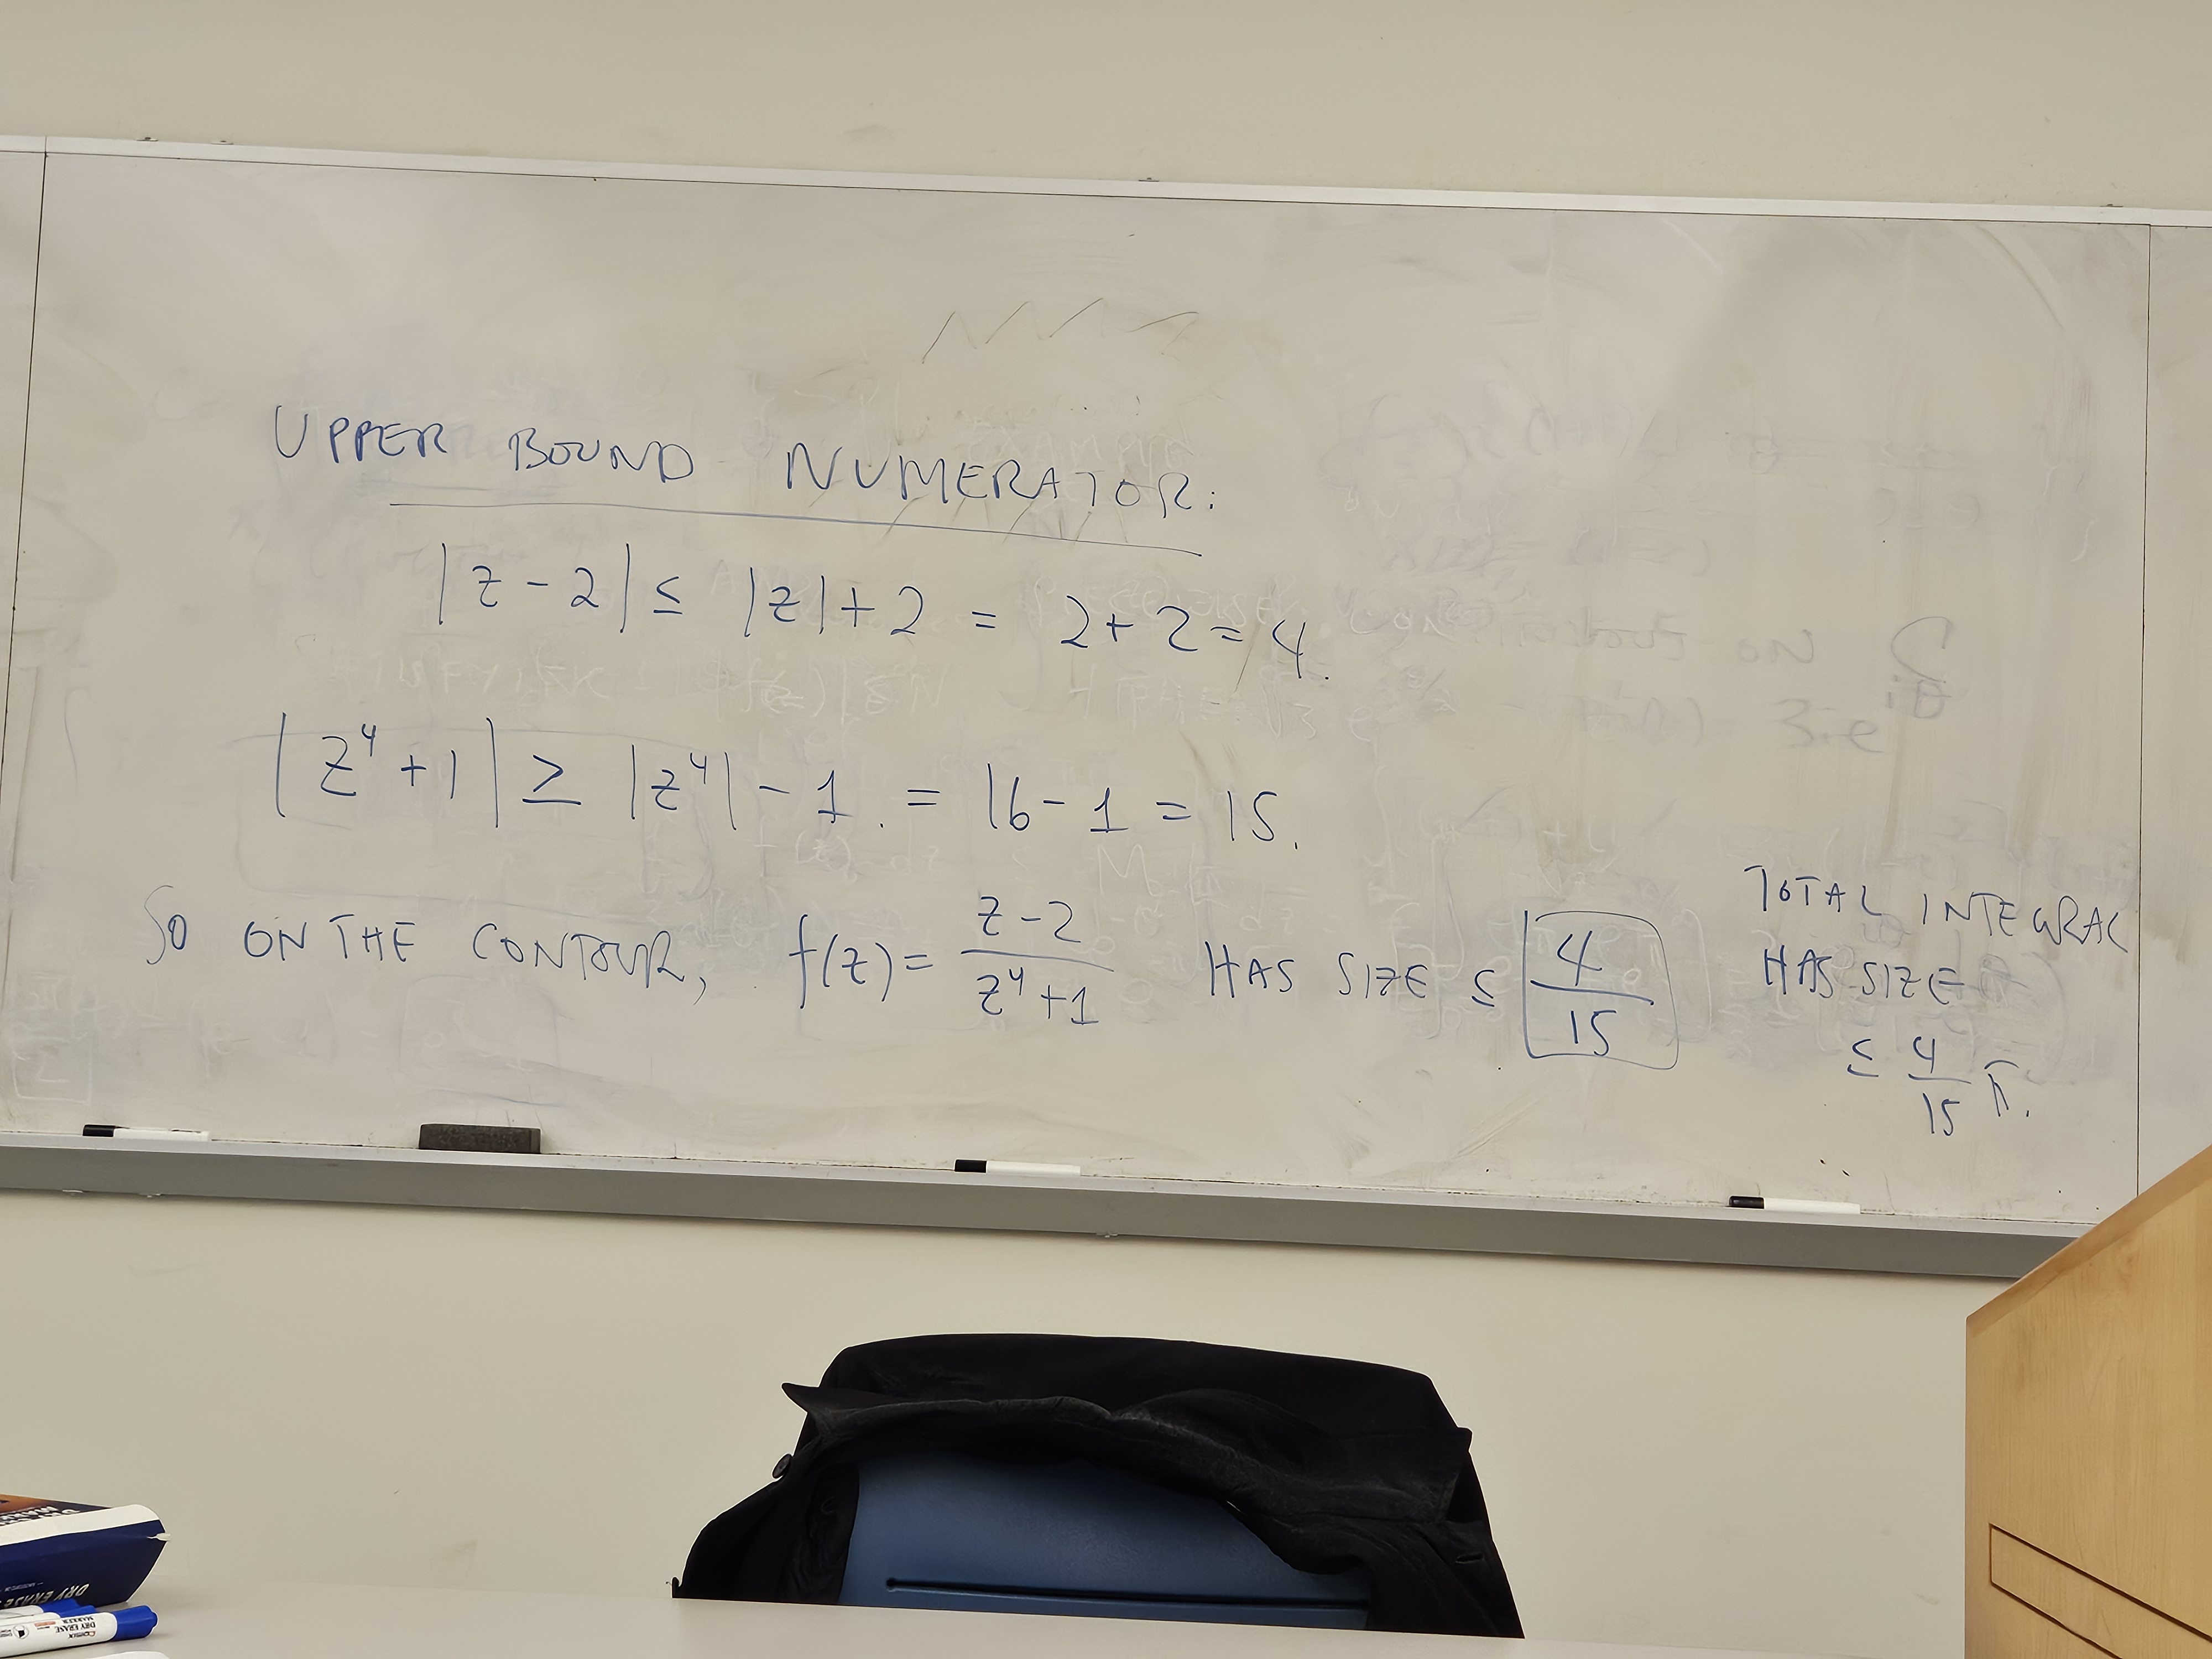 UPPER BOUND NUMERATOR:
|z - 2| ≤ |z| + 2 = 2 + 2 = 4.
|z⁴ + 1| ≥ |z⁴| - 1. = 16 - 1 = 15.
SO ON THE CONTOUR, f(z) = (z - 2)/(z⁴ + 1) HAS SIZE ≤ 4/15
TOTAL INTEGRAL
HAS SIZE
≤ 4/15 π.
DRY ERASE
DRY ERASE